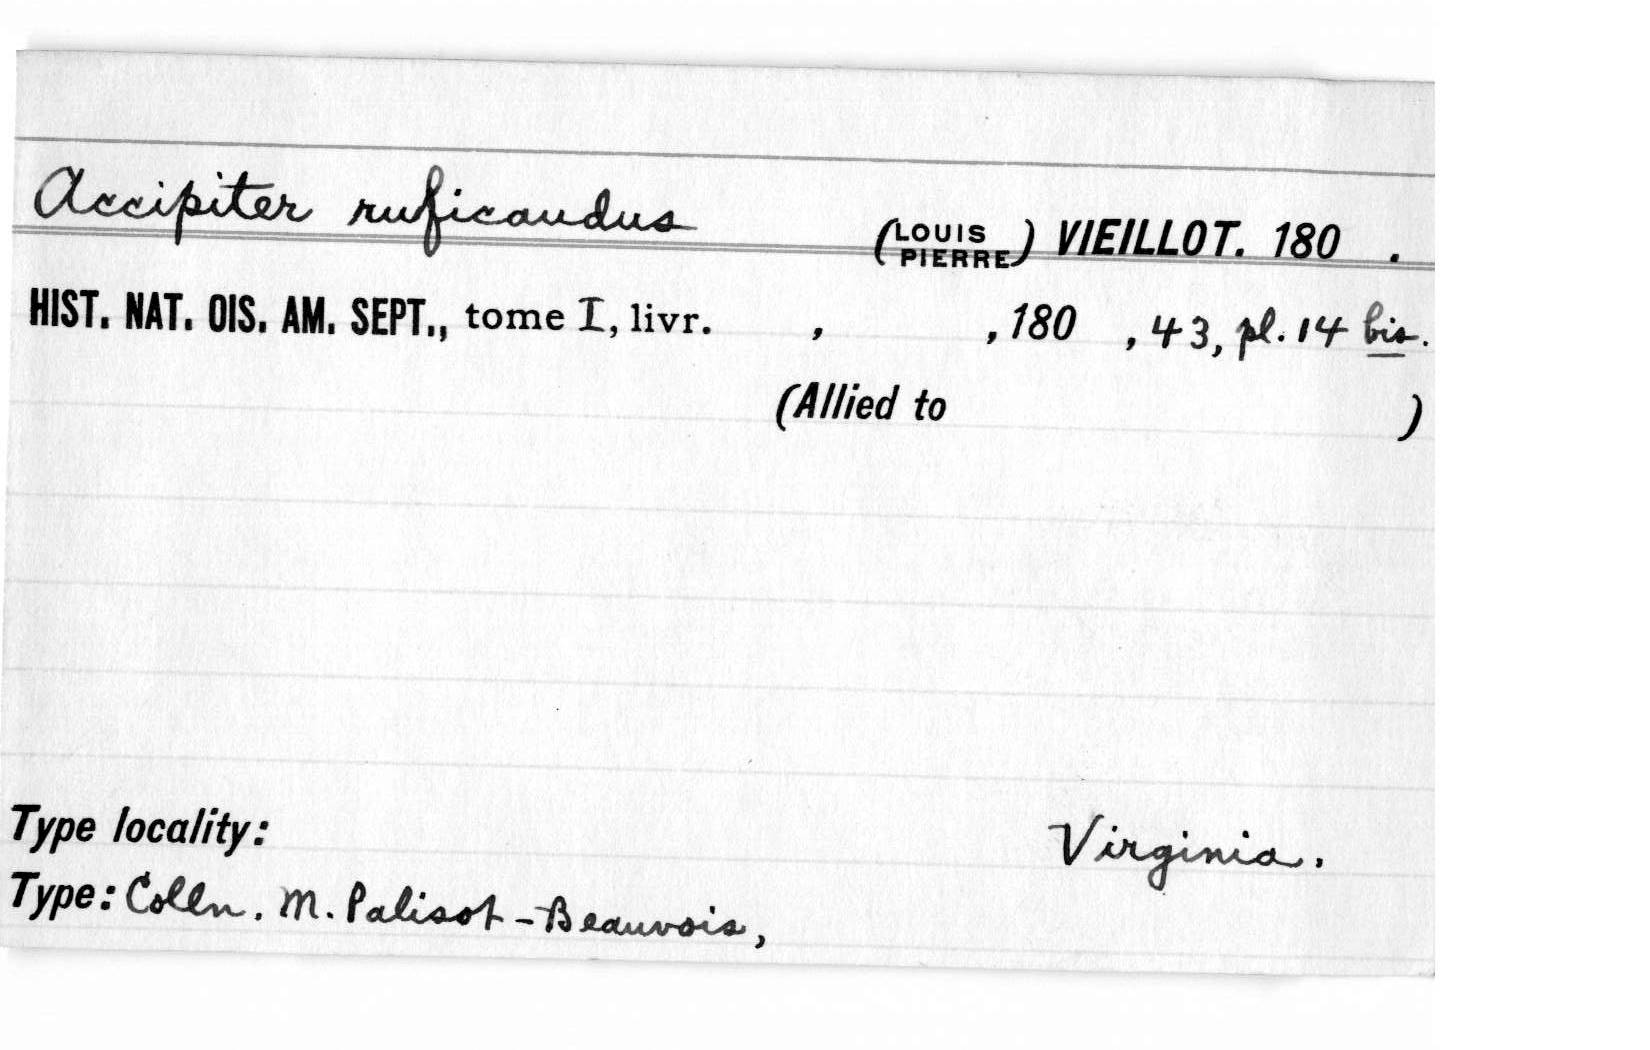 Accipiter ruficaudus (LOUIS PIERRE) VIEILLOT. 180 .
HIST. NAT. OIS. AM. SEPT., tome I, livr. , , 180 , 43, pl. 14 bis.
(Allied to )
Type locality: Virginia.
Type: Colln. M. Palisot-Beauvois,